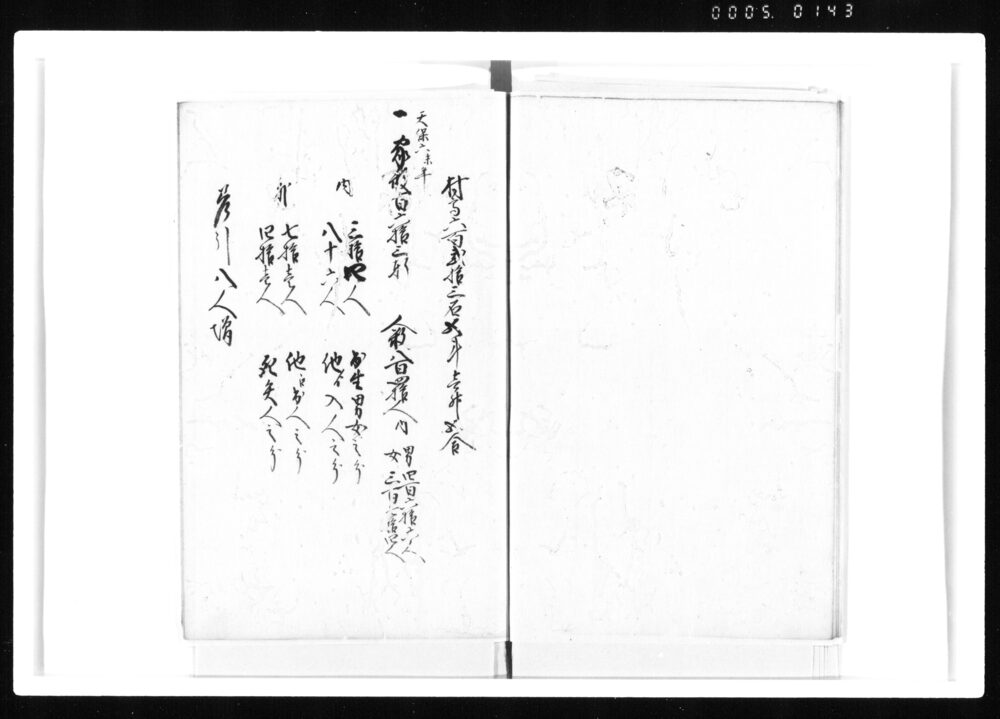 0005. 0143
村高六百弐拾三石五斗壱升五合
天保六未年
一 家数百六拾三軒 人数八百三拾人 内 男四百六拾六人 女三百六拾四人
内 三拾四人 出生男女之分
八十六人 他ゟ入人之分
七拾壱人 他江出人之分
四拾壱人 死失人之分
差引八人増